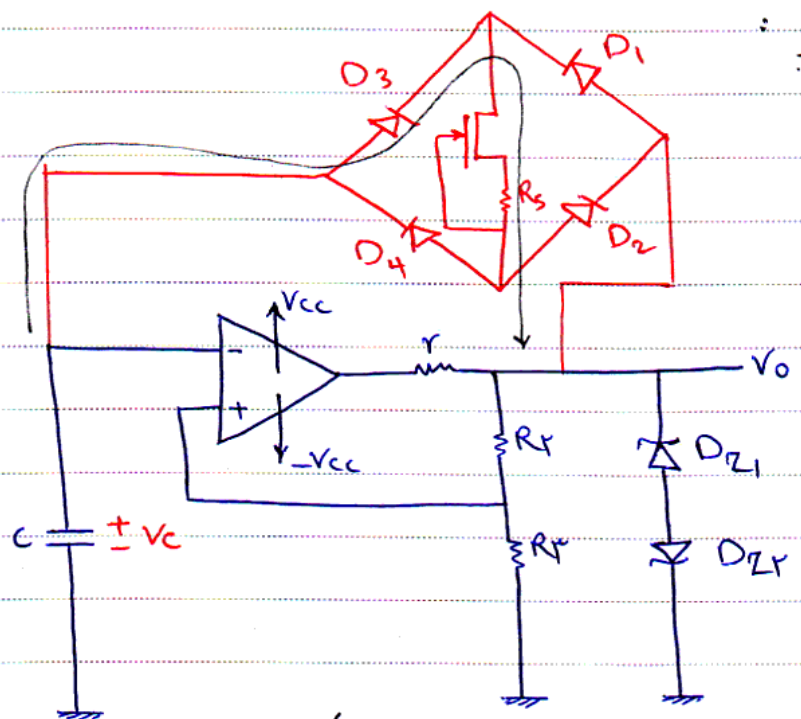 D1
D3
Rs
D4
D2
Vcc
r
Vo
-
+
-Vcc
R۲
DZ1
C
± Vc
R۳
DZ۲